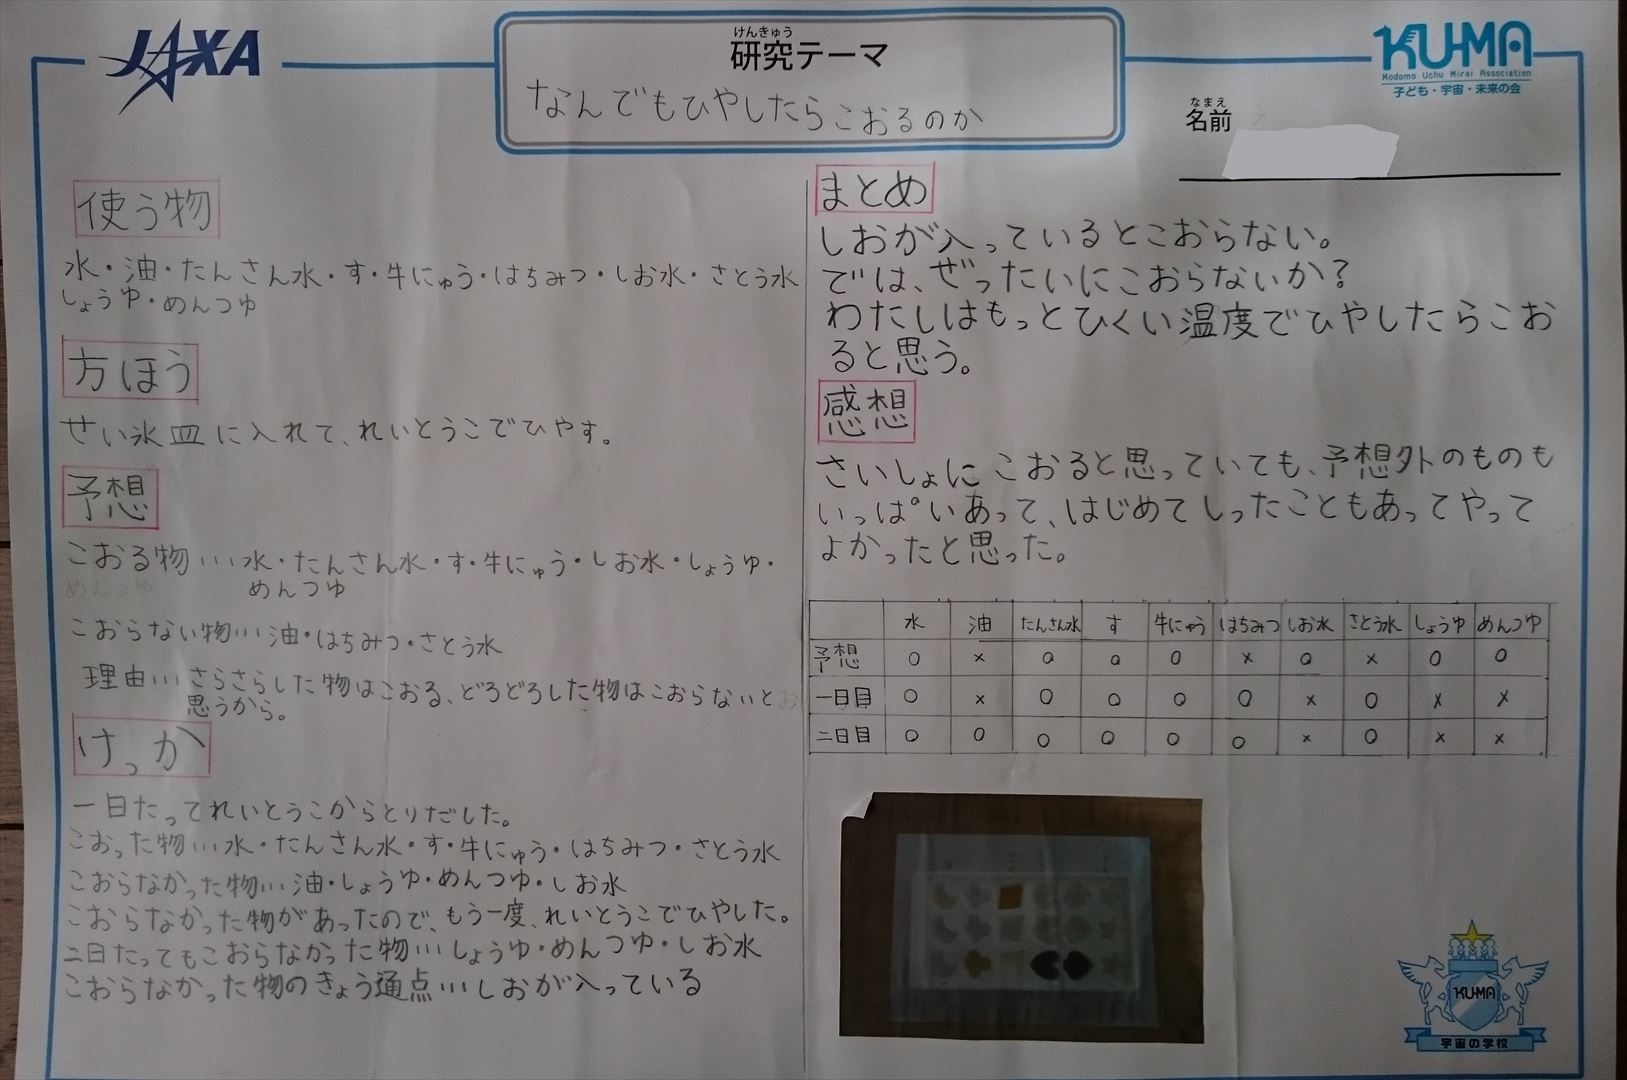 JAXA
けんきゅう
研究テーマ
なんでもひやしたらこおるのか
KUMA
Kodomo Uchu Mirai Association
子ども・宇宙・未来の会
なまえ
名前
使う物
水・油・たんさん水・す・牛にゅう・はちみつ・しお水・さとう水
しょうゆ・めんつゆ
方ほう
せい氷皿に入れて、れいとうこでひやす。
予想
こおる物…水・たんさん水・す・牛にゅう・しお水・しょうゆ・
めんつゆ
こおらない物…油・はちみつ・さとう水
理由…さらさらした物はこおる、どろどろした物はこおらないと
思うから。
けっか
一日たってれいとうこからとりだした。
こおった物…水・たんさん水・す・牛にゅう・はちみつ・さとう水
こおらなかった物…油・しょうゆ・めんつゆ・しお水
こおらなかった物があったので、もう一度、れいとうこでひやした。
二日たってもこおらなかった物…しょうゆ・めんつゆ・しお水
こおらなかった物のきょう通点…しおが入っている
まとめ
しおが入っているとこおらない。
では、ぜったいにこおらないか?
わたしはもっとひくい温度でひやしたらこお
ると思う。
感想
さいしょに こおると思っていても、予想外のものも
いっぱいあって、はじめてしったこともあってやって
よかったと思った。
水 油 たんさん水 す 牛にゅう はちみつ しお水 さとう水 しょうゆ めんつゆ
予想 ○ × ○ ○ ○ × ○ × ○ ○
一日目 ○ × ○ ○ ○ ○ × ○ × ×
二日目 ○ ○ ○ ○ ○ ○ × ○ × ×
KUMA
宇宙の学校